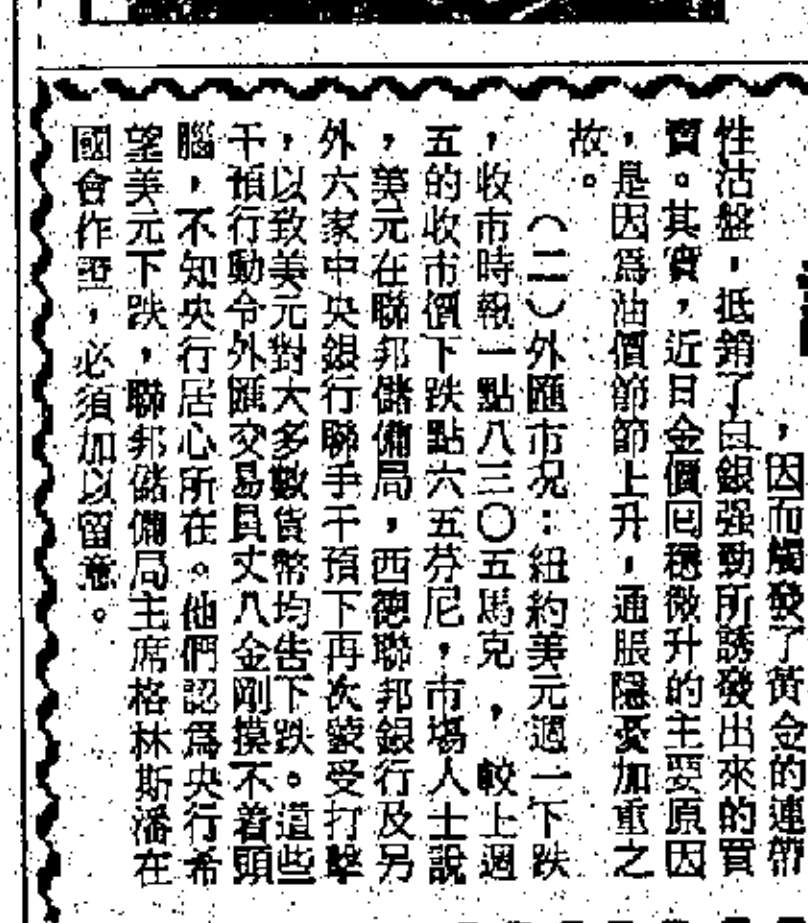 ，因而觸發了黃金的連帶
性沽盤，抵銷了白銀强勁所誘發出來的買
賣。其實，近日金價囘穩微升的主要原因
，是因爲油價節節上升，通脹隱憂加重之
故。
（二）外匯市况：紐約美元週一下跌
，收市時報一點八三〇五馬克，較上週
五的收市價下跌點六五芬尼，市場人士說
，美元在聯邦儲備局，西德聯邦銀行及另
外六家中央銀行聯手干預下再次蒙受打擊
，以致美元對大多數貨幣均告下跌。這些
干預行動令外匯交易員丈八金剛摸不着頭
腦，不知央行居心所在。他們認爲央行希
望美元下跌，聯邦儲備局主席格林斯潘在
國會作證，必須加以留意。